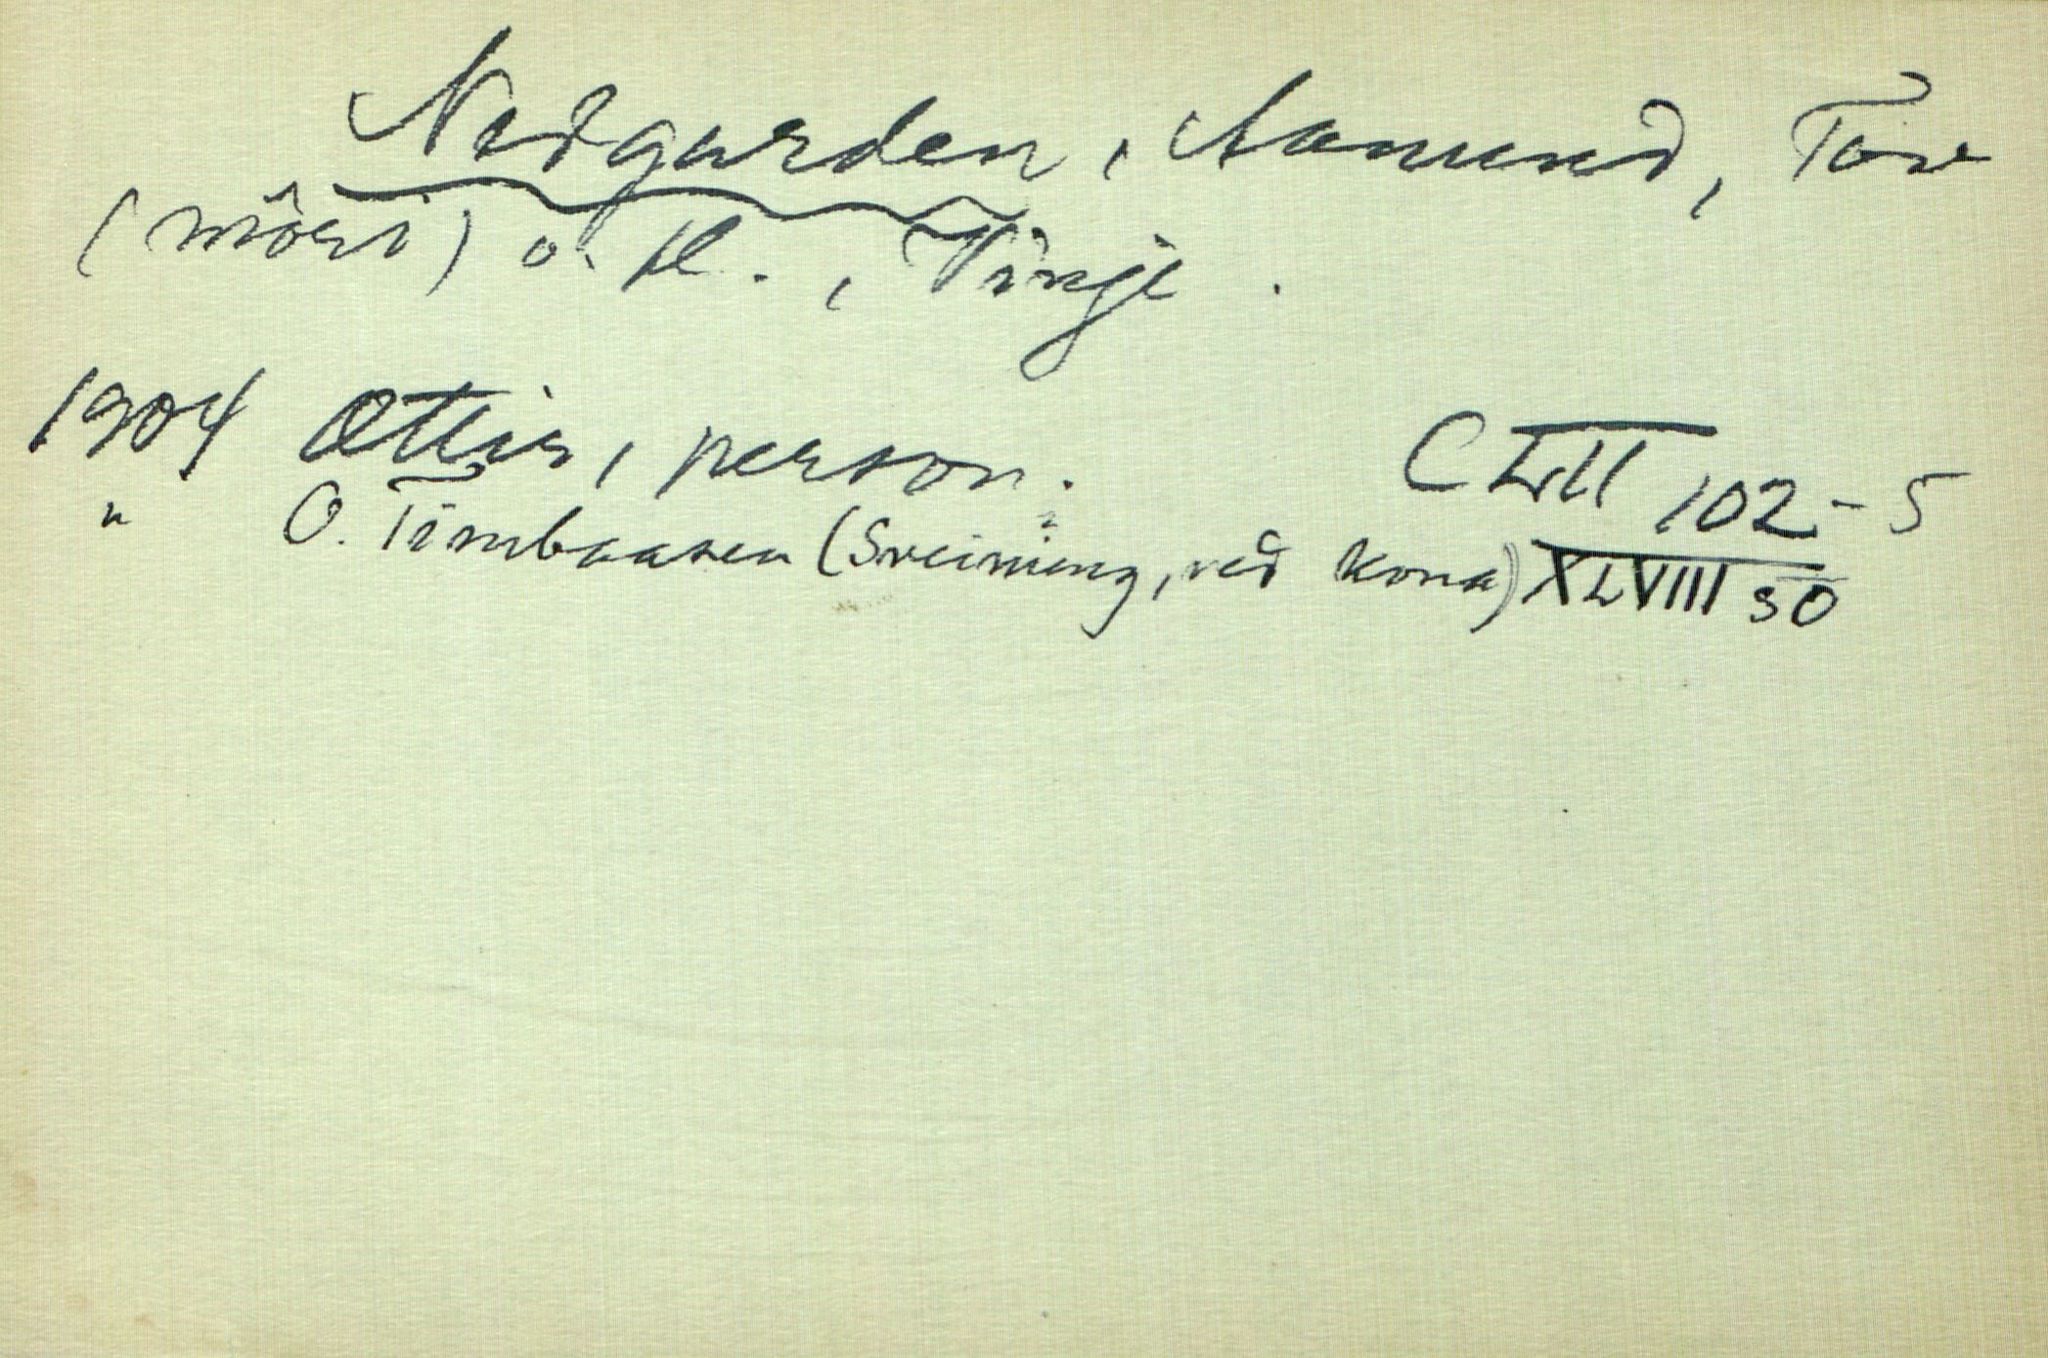 Nedgarden, Aamund, Tov
(môri) o. fl., Tinje.
1904 Ættir, person. CLII 102-5
" O. Timbaasen (Sveining, ved kona) XLVIII 50